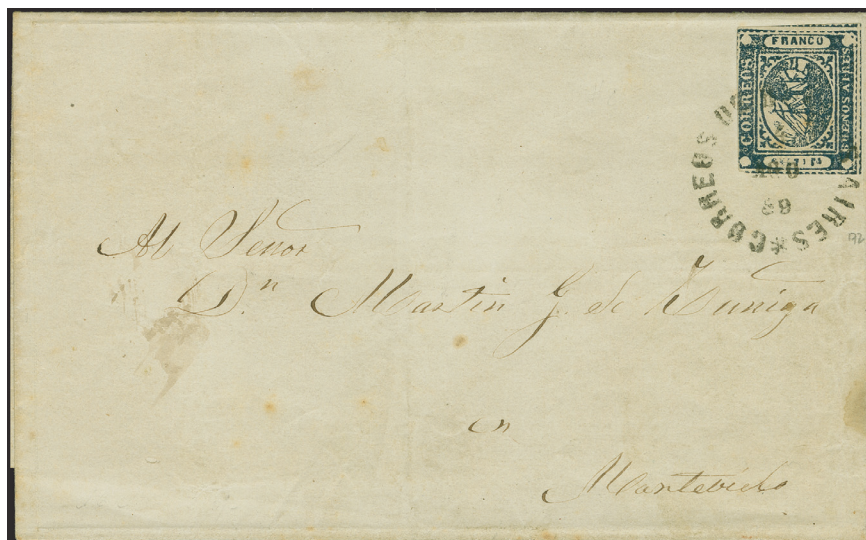 FRANCO
CORREOS
BUENOS AIRES
CORREOS AIRES *
Al Señor
D.n Martin G. de Zuñiga
en
Montevideo